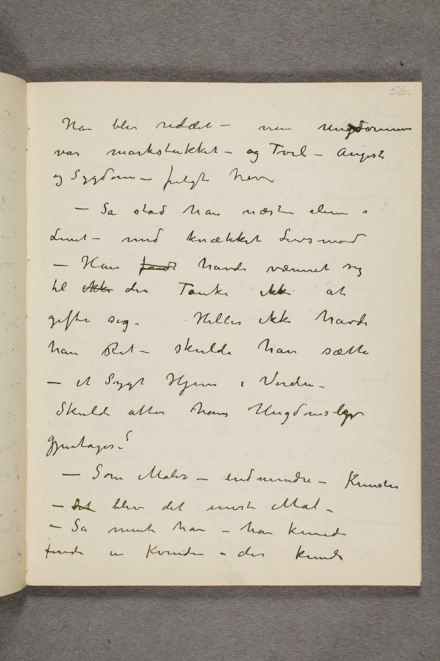 56.
Han blev reddet – men Ungdommen
var markstukket – og Tvil – Angst
og Sygdom – fulgte ham
– Så stod han næsten alene i
Livet – med knækket Livsmod
– Han havde vænnet sig
til ikke den Tanke ikke at
gifte sig. Heller ikke havde
han Ret – skulde han sætte
– et Sygt Hjem i Verden –
Skuld atter hans Ungdoms
gjentages?
– Som Maler – end mindre – Kunsten
– Det blev det eneste Mål –
– Så mente han – han kunde
finde en Kvinde – der kunde